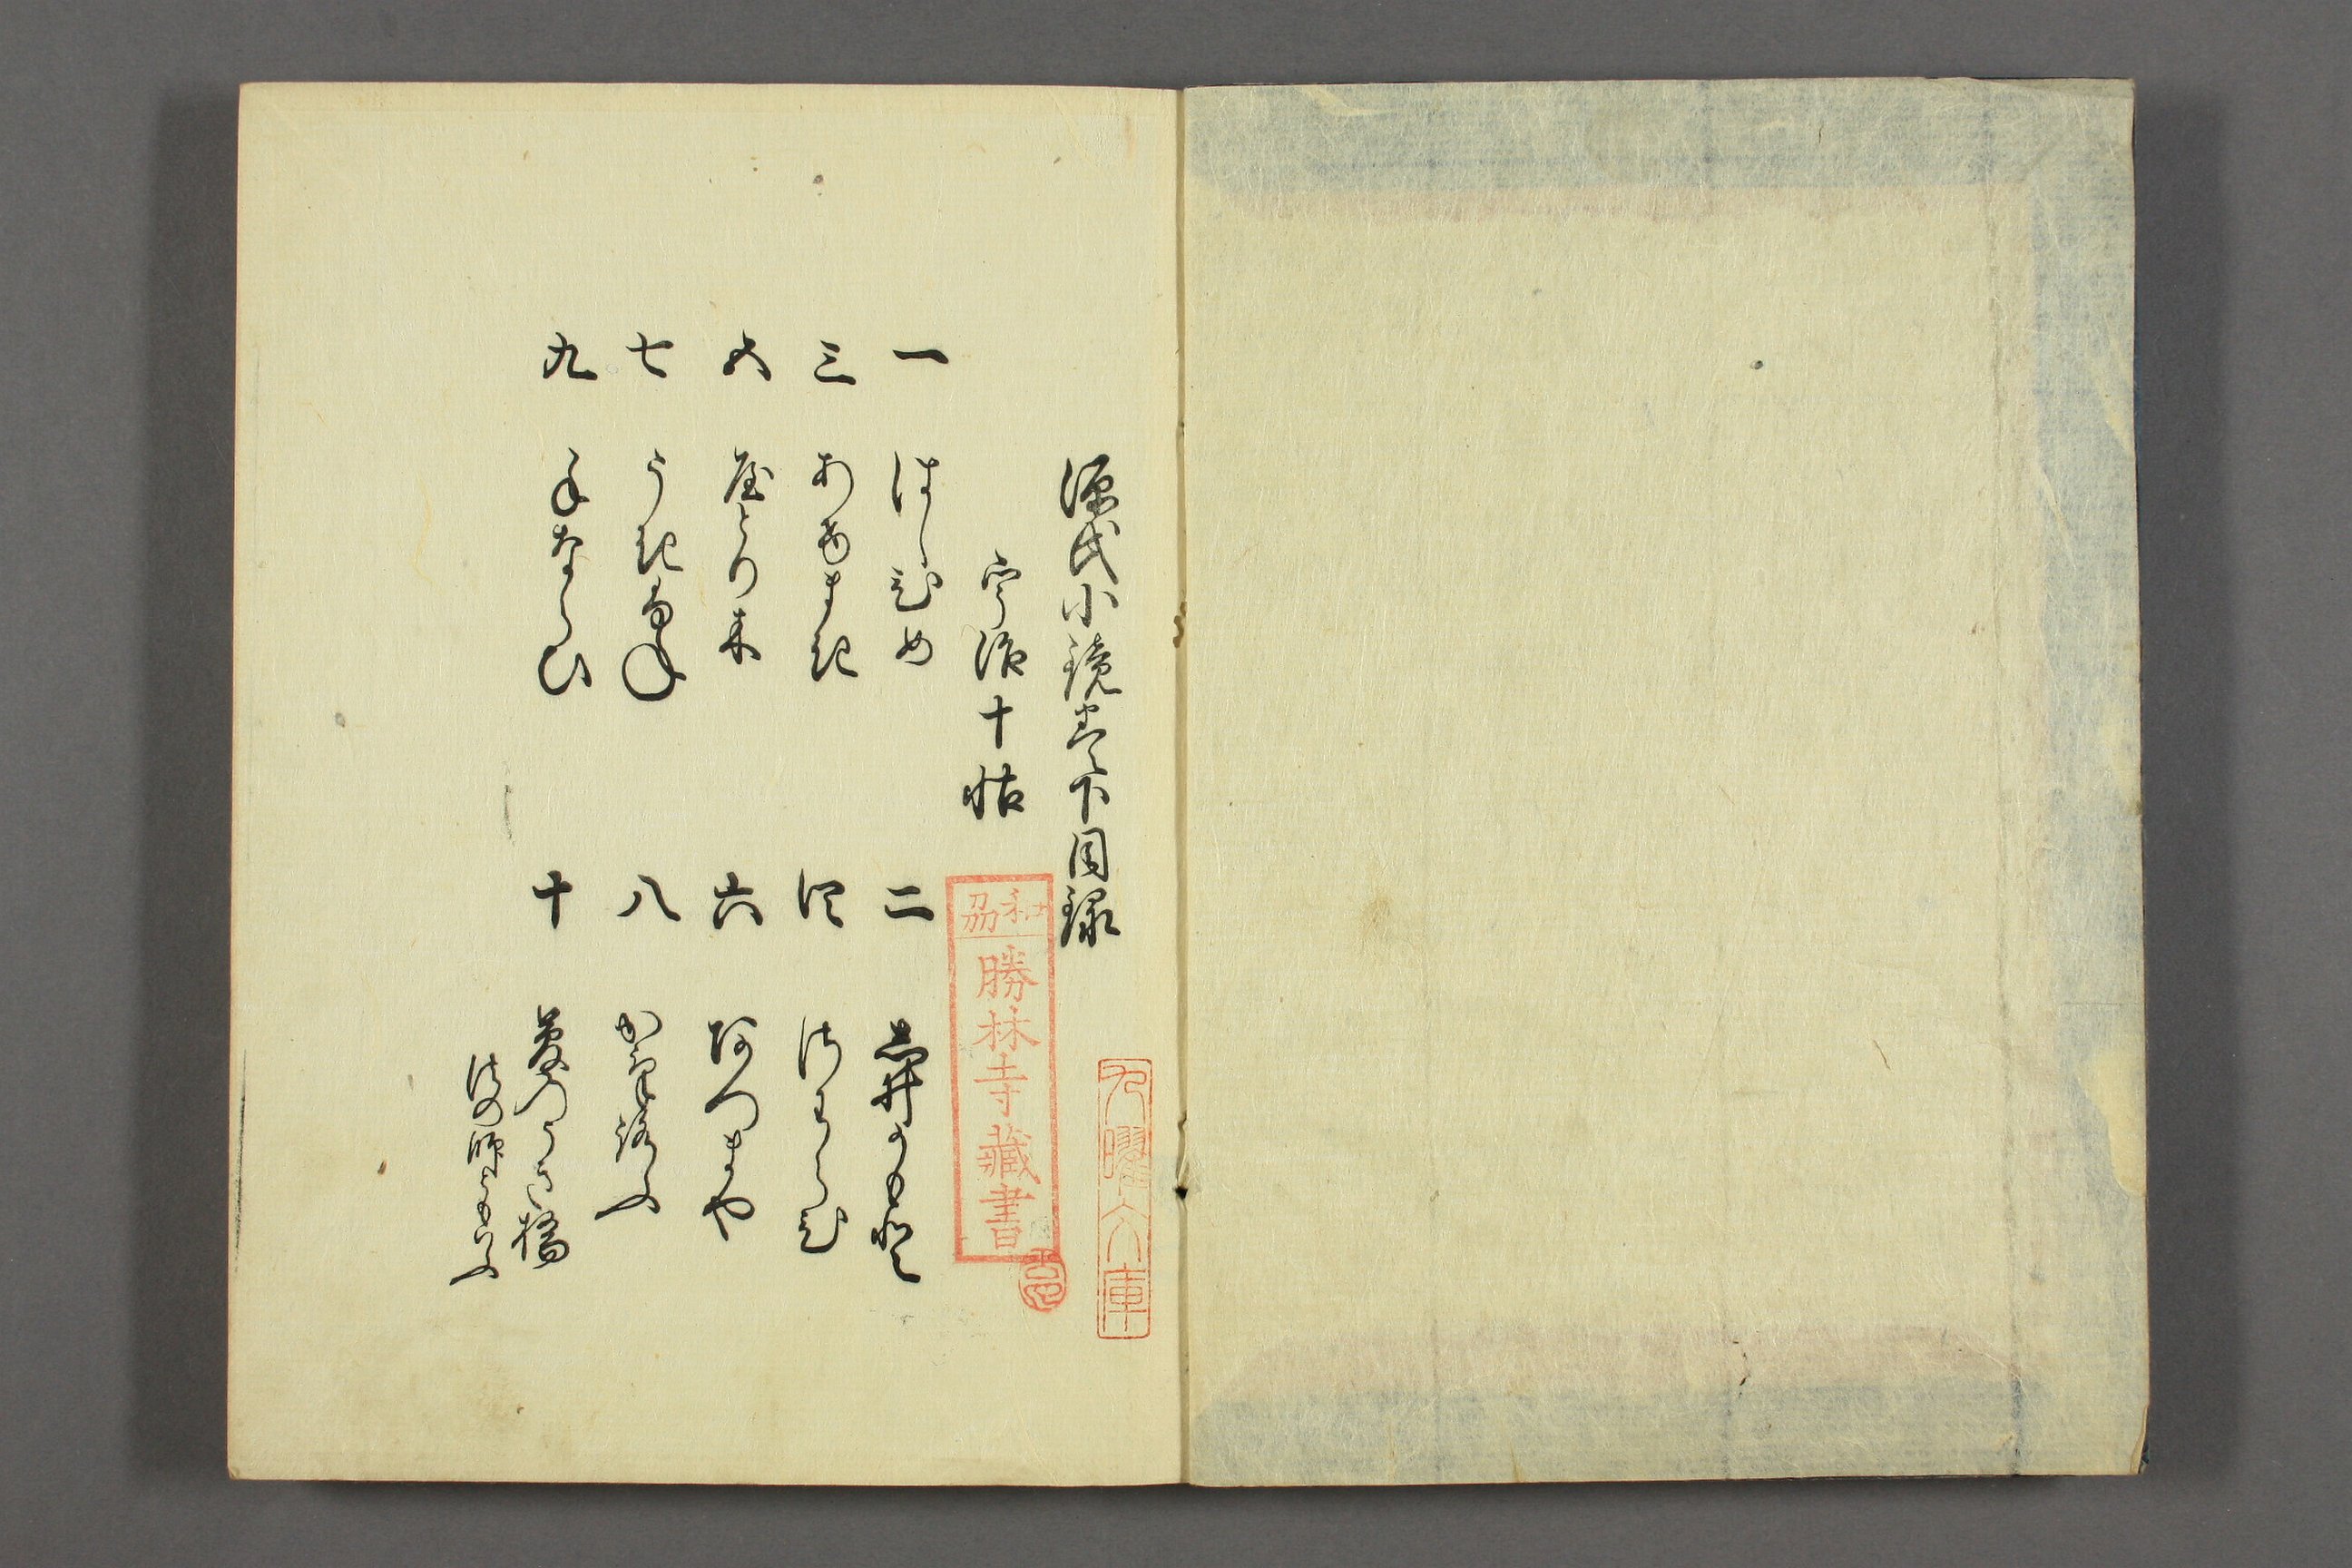 源氏小鏡巻下目録
宇治十帖
一 はしひめ
二 志井かもと
三 あけまき
四 さわらひ
五 屋とり木
六 阿つまや
七 うきふね
八 かけろふ
九 手ならひ
十 夢のうき橋
法の師ともいふ
和刕
勝林寺藏書
九曜文庫